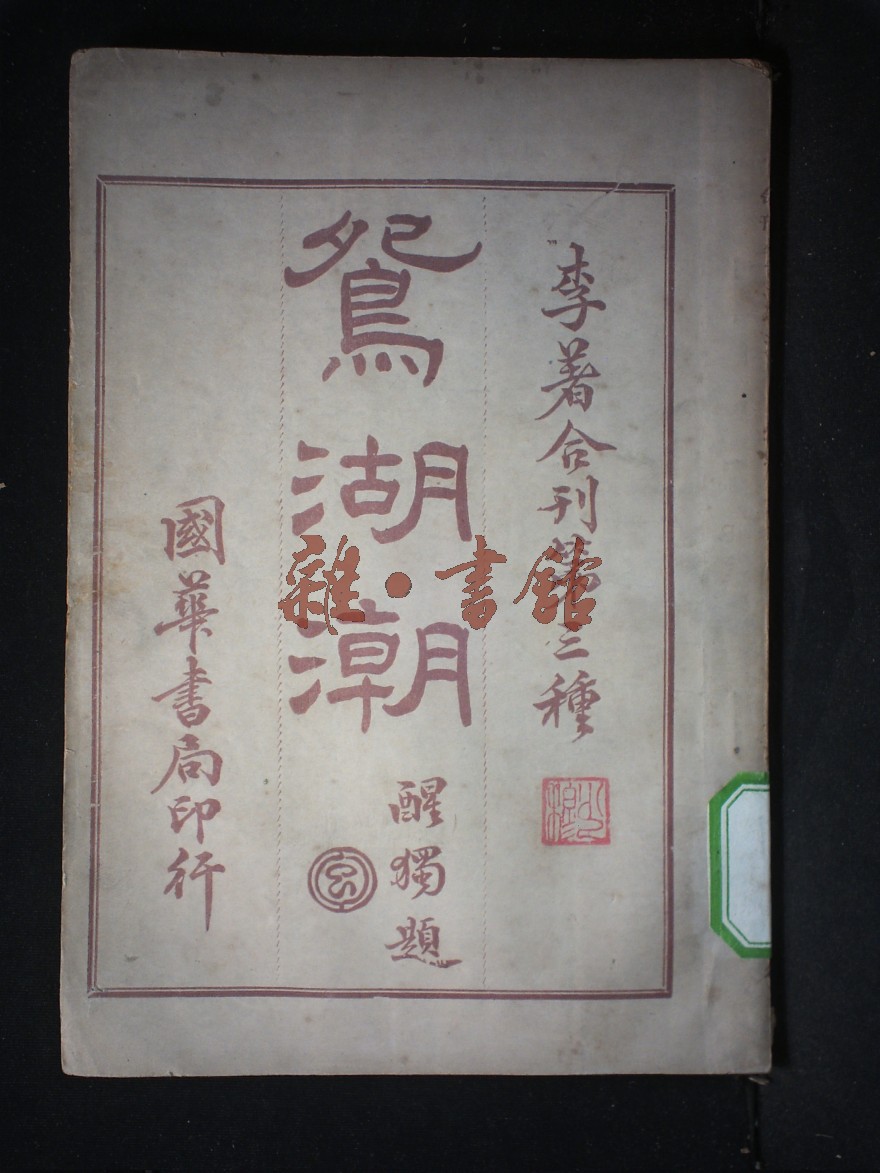 李著合刊第三種
鴛湖潮
醒獨題
國華書局印行
雜·書館